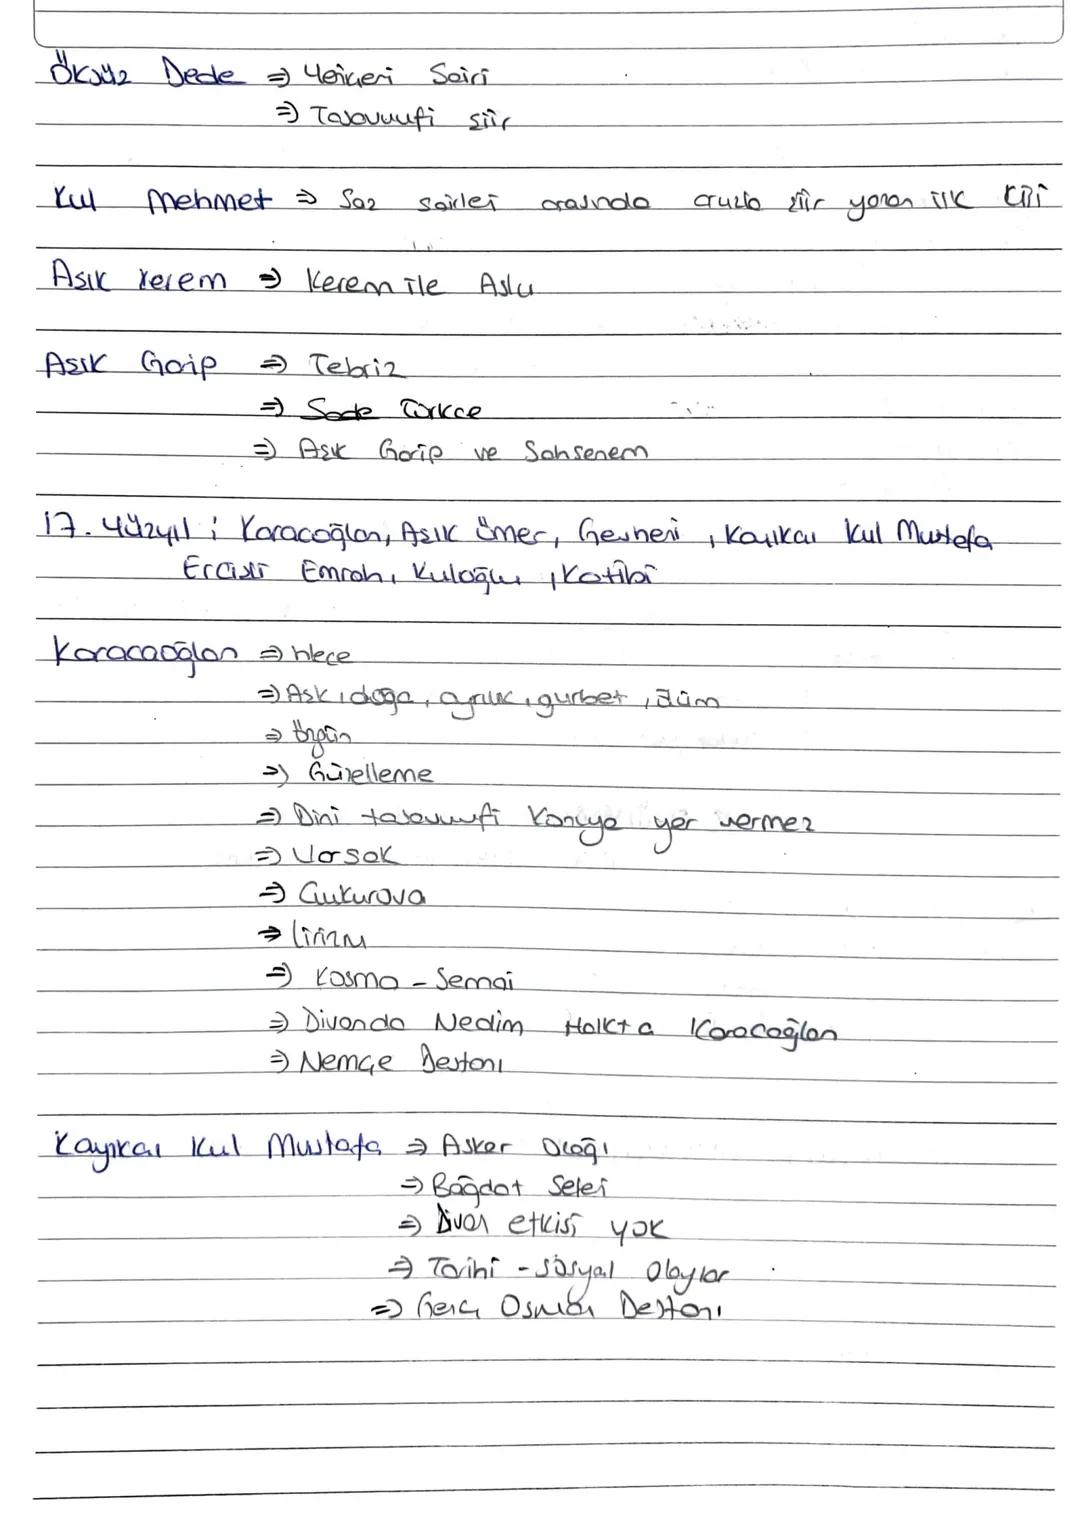 Öksüz Dede ⇒ Yeniçeri Şairi
⇒ Tasavvufi şiir
Kul Mehmet ⇒ Saz şairleri arasında aruzla şiir yazan ilk kişi
Aşık Kerem ⇒ Kerem ile Aslı
Aşık Garip ⇒ Tebriz
⇒ Sade Türkçe
⇒ Aşık Garip ve Şahsenem
17. Yüzyıl : Karacoğlan, Aşık Ömer, Gevheri, Kayıkçı Kul Mustafa
Ercişli Emrah, Kuloğlu, Katibi
Karacaoğlan ⇒ Hece
⇒ Aşk, doğa, ayrılık, gurbet, ölüm
⇒ Özgün
⇒ Güzelleme
⇒ Dini tasavvufi konuya yer vermez
⇒ Varsak
⇒ Çukurova
⇒ Lirizm
⇒ Koşma - Semai
⇒ Divanda Nedim Halkta Karacaoğlan
⇒ Nemçe Destanı
Kayıkçı Kul Mustafa ⇒ Asker Ocağı
⇒ Bağdat Seferi
⇒ Divan etkisi yok
⇒ Tarihi - sosyal olaylar
⇒ Genç Osman Destanı